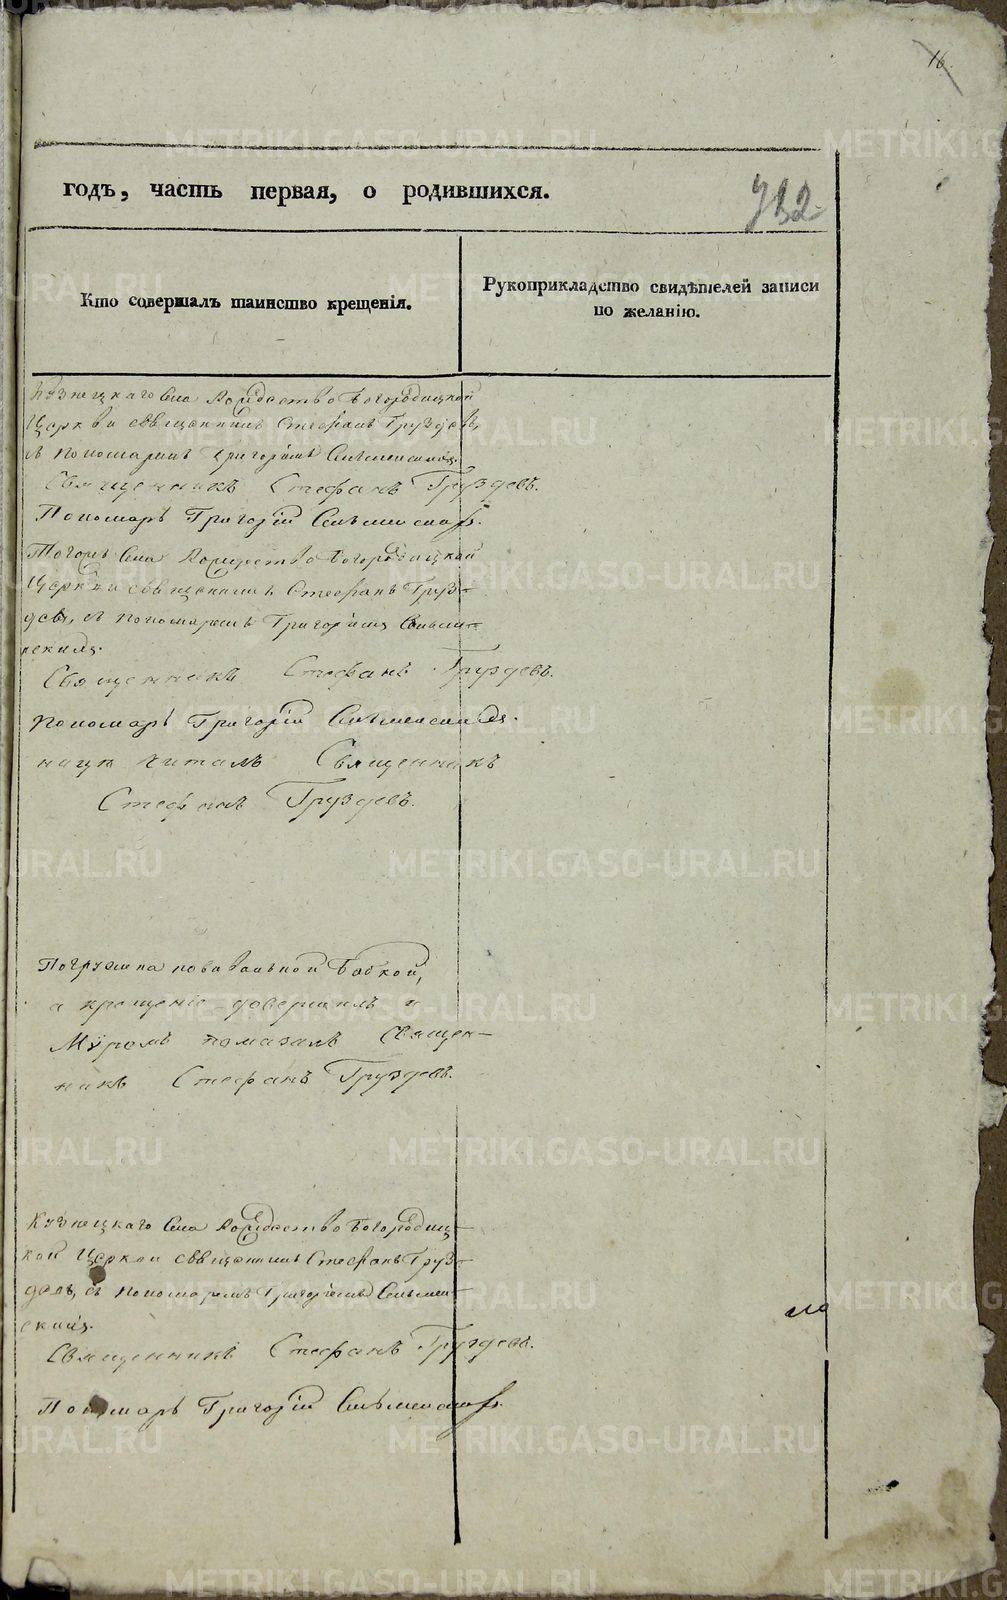 16.
годъ, часть первая, о родившихся.
732
Кто совершалъ таинство крещенія.
Рукоприкладство свидѣтелей записи
по желанію.
Кузнецкаго Села Рождество Богородицкой
Церкви священникъ Стефанъ Груздевъ,
съ пономаремъ Григоріемъ
Священникъ Стефанъ Груздевъ.
Пономарь Григорій
Тогожъ Села Рождество Богородицкой
Церкви священникъ Стефанъ Груз-
девъ, съ пономаремъ Григоріемъ
Священникъ Стефанъ Груздевъ.
Пономарь Григорій
читалъ Священникъ
Стефанъ Груздевъ.
Погружена повивальной Бабкой,
а крещеніе довершилъ и
Мѵромъ помазалъ Священ-
никъ Стефанъ Груздевъ.
Кузнецкаго Села Рождество Богородиц-
кой Церкви священникъ Стефанъ Груз-
девъ, съ пономаремъ Григоріемъ
Священникъ Стефанъ Груздевъ.
Пономарь Григорій
METRIKI.GASO-URAL.RU